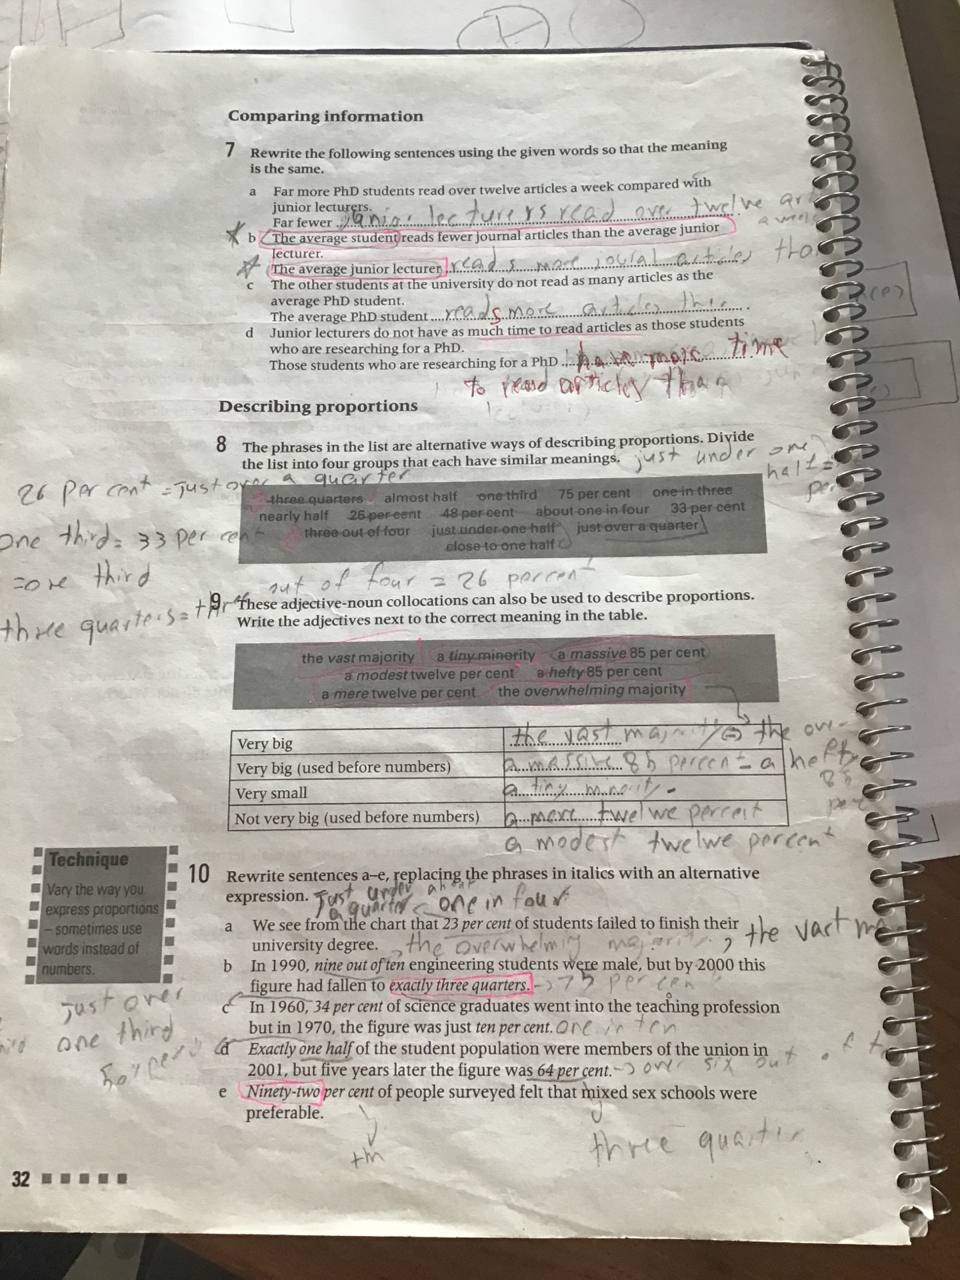 Comparing information
7 Rewrite the following sentences using the given words so that the meaning
is the same.
a Far more PhD students read over twelve articles a week compared with
junior lecturers.
Far fewer junior lecturers read over twelve
b The average student reads fewer journal articles than the average junior
lecturer.
The average junior lecturer reads more articles
c The other students at the university do not read as many articles as the
average PhD student.
The average PhD student reads more articles
d Junior lecturers do not have as much time to read articles as those students
who are researching for a PhD.
Those students who are researching for a PhD have more time
to read
Describing proportions
8 The phrases in the list are alternative ways of describing proportions. Divide
the list into four groups that each have similar meanings. just under one
half =
26 per cent = just over a quarter
three quarters almost half one third 75 per cent one in three
nearly half 26 per cent 48 per cent about one in four 33 per cent
three out of four just under one half just over a quarter
close to one half
one third = 33 per cen
= one third
three quarters = thr
out of four = 26 percent
9 These adjective-noun collocations can also be used to describe proportions.
Write the adjectives next to the correct meaning in the table.
the vast majority a tiny minority a massive 85 per cent
a modest twelve per cent a hefty 85 per cent
a mere twelve per cent the overwhelming majority
Very big the vast the over
Very big (used before numbers) a massive 85 percent = a hefty
85
per
Very small a tiny minority
Not very big (used before numbers) a mere twelwe percent
a modest twelwe percent
Technique
Vary the way you
express proportions
– sometimes use
words instead of
numbers.
10 Rewrite sentences a–e, replacing the phrases in italics with an alternative
expression. Just under
a quarter one in four
a We see from the chart that 23 per cent of students failed to finish their
university degree. the overwhelming majority, the vast ma
b In 1990, nine out of ten engineering students were male, but by 2000 this
figure had fallen to exactly three quarters. 75 per cen
c In 1960, 34 per cent of science graduates went into the teaching profession
but in 1970, the figure was just ten per cent. one in ten
just over
one third
d Exactly one half of the student population were members of the union in
2001, but five years later the figure was 64 per cent. over six out of
e Ninety-two per cent of people surveyed felt that mixed sex schools were
preferable.
three quarter
32